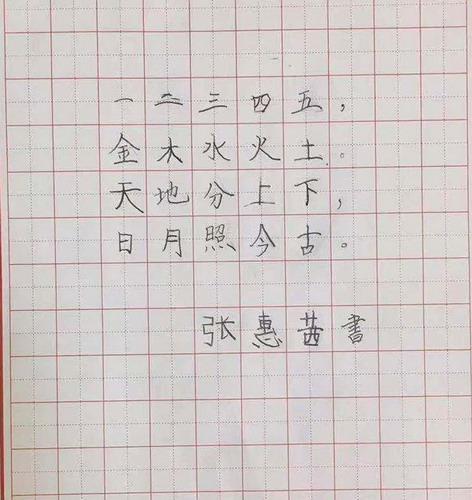 一二三四五，
金木水火土。
天地分上下，
日月照今古。
张惠茜書